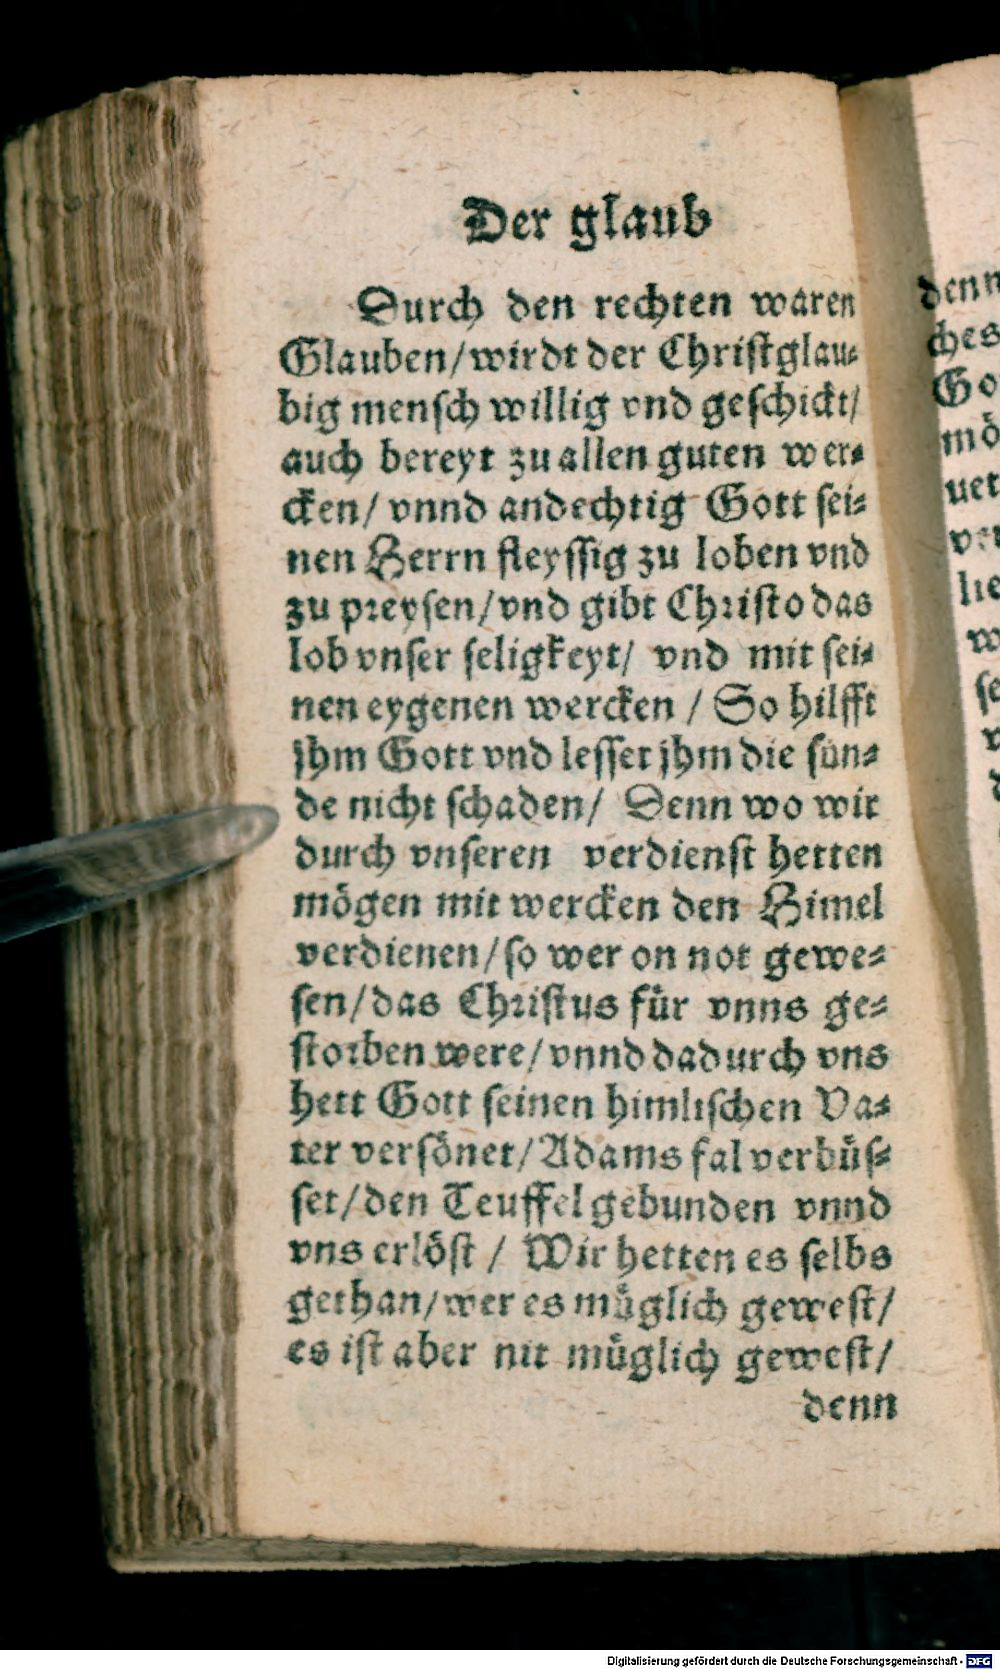 Der glaub
Durch den rechten waren
Glauben/wirdt der Christglau⸗
big mensch willig vnd geschickt/
auch bereyt zu allen guten wer⸗
cken/ vnnd andechtig Gott sei⸗
nen Herrn fleyssig zu loben vnd
zu preysen/vnd gibt Christo das
lob vnser seligkeyt/ vnd mit sei⸗
nen eygenen wercken / So hilfft
jhm Gott vnd lesset jhm die sün⸗
de nicht schaden/ Denn wo wir
durch vnseren verdienst hetten
mögen mit wercken den Himel
verdienen/so wer on not gewe⸗
sen/das Christus für vnns ge⸗
storben were/vnnd dadurch vns
hett Gott seinen himlischen Va⸗
ter versönet/Adams fal verbüs⸗
set/den Teuffel gebunden vnnd
vns erlöst / Wir hetten es selbs
gethan/wer es müglich gewest/
es ist aber nit müglich gewest/
denn
denn
ches
Go
mö
uet
ver
lie
w
se
v
d
Digitalisierung gefördert durch die Deutsche Forschungsgemeinschaft - DFG